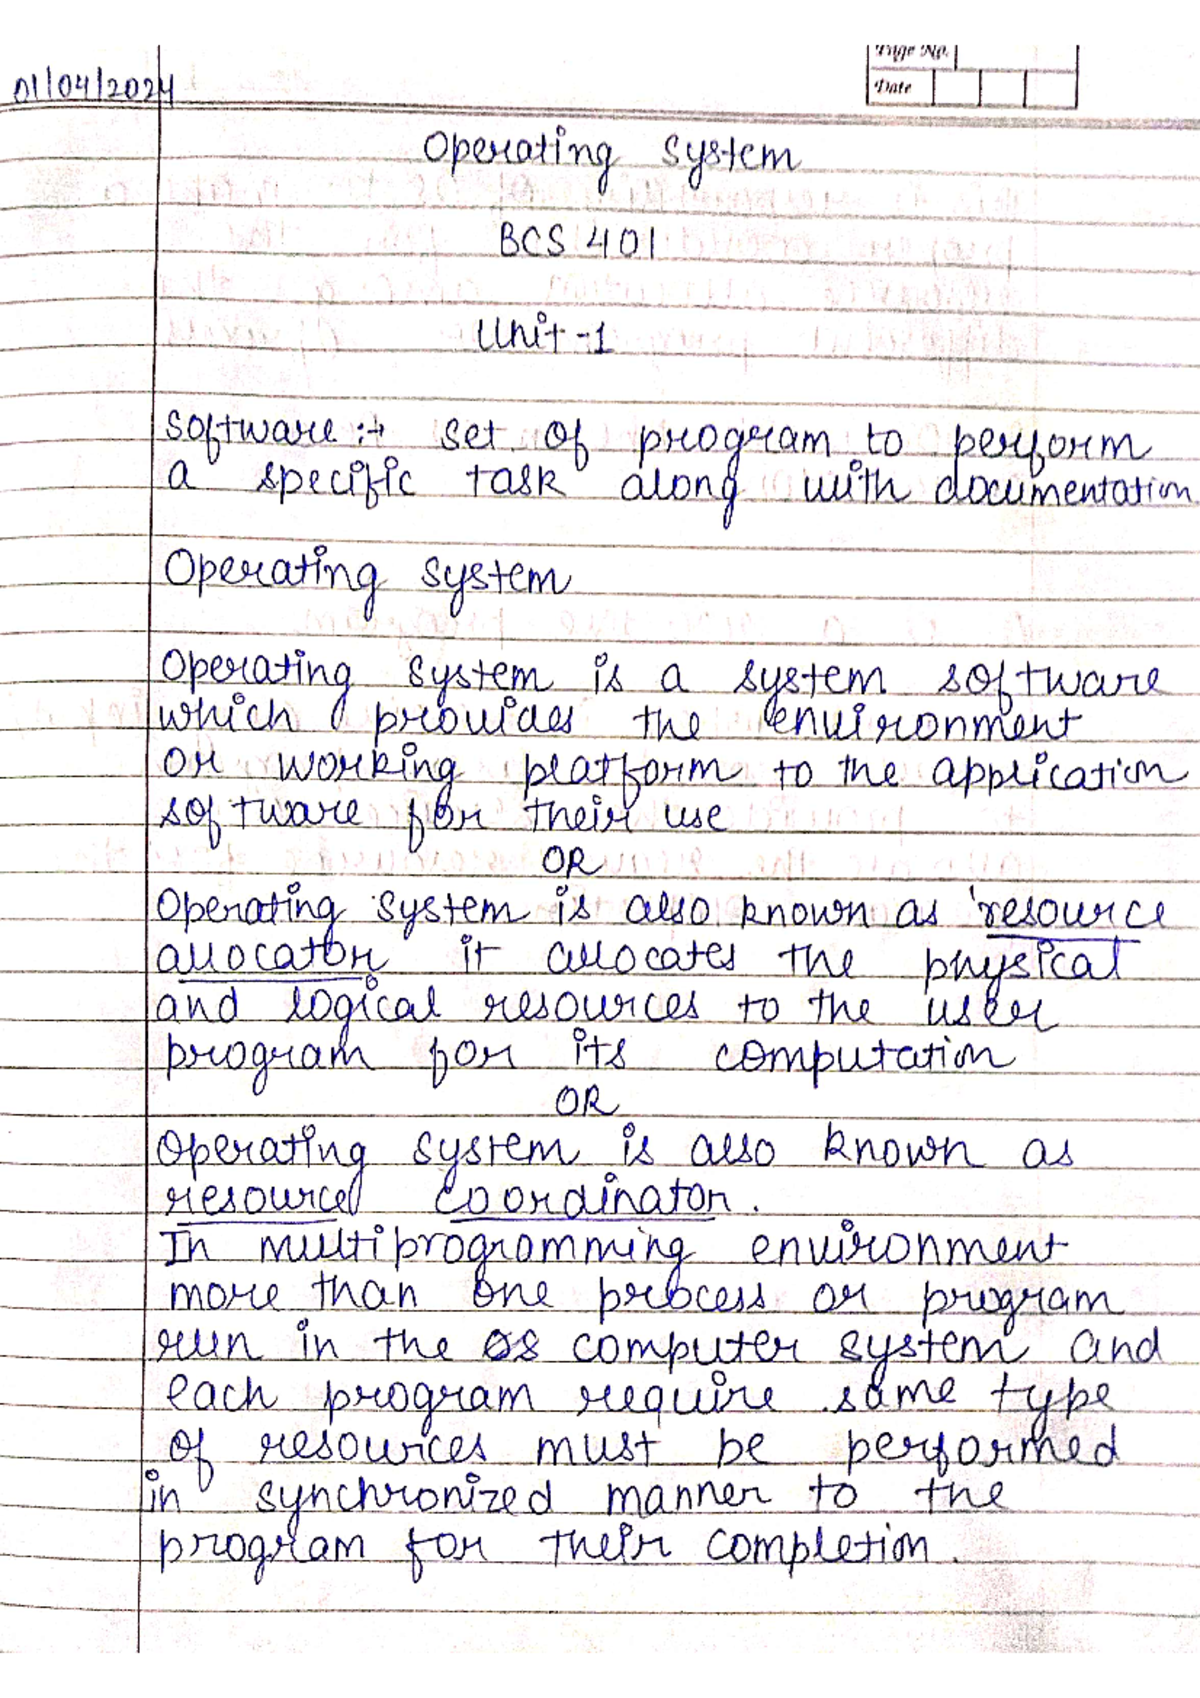 Page No.
01/04/2024
Date
Operating System
BCS 401
Unit -1
Software :→ set of program to perform
a specific task along with documentation
Operating System
Operating system is a system software
which provides the environment
or working platform to the application
software for their use
OR
Operating system is also known as 'resource
allocator it allocates the physical
and logical resources to the user
program for its computation
OR
Operating system is also known as
resource coordinator.
In multiprogramming environment
more than one process or program
run in the os computer system and
each program require same type
of resources must be performed
in synchronized manner to the
program for their completion.